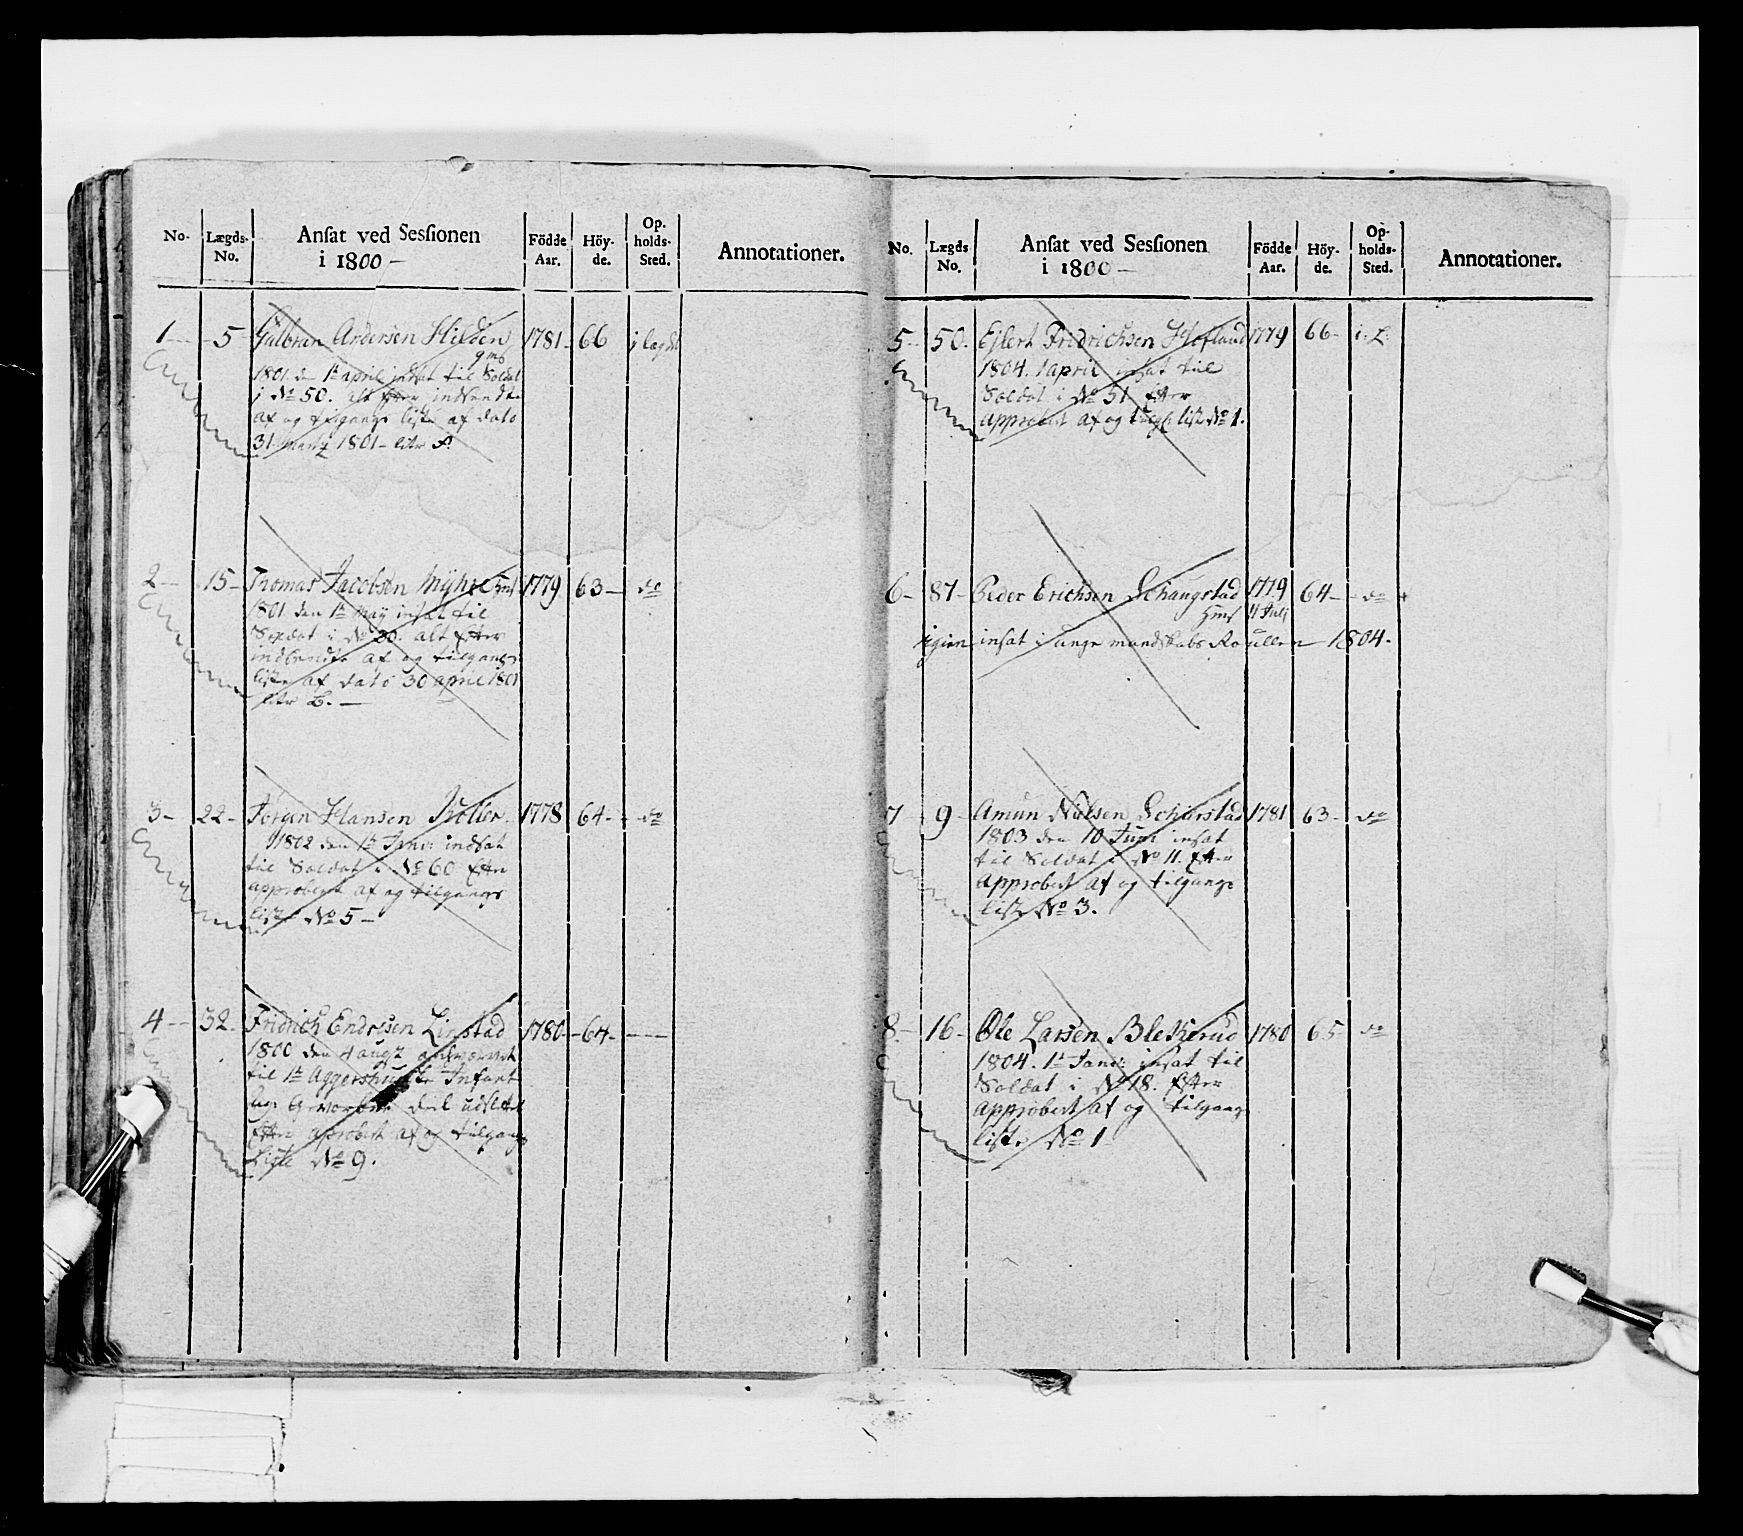 No. Lægds- No. Ansat ved Sessionen i 1800 – Födde Aar. Höy- de. Op- holds- Sted. Annotationer.
1 – 5 – Gulbran Andersen Hilden 1781 – 66 i lægdet
gms
1801 den 1te april indsat til Soldat
i No 50. alt Efter indsendte
af og tilgangs liste af dato
31 Martz 1801 – litr A.
2 – 15 – Thomas Jacobsen Myhre gms 1779 63 – do
1801 den 1te May insat til
Soldat i No 20. alt Efter
indsendte af og tilgangs
liste af dato 30 april 1801
litr B. –
3 – 22 – Jørgen Hansen 1778 64 – do
1802 den 1te Janr: indsat
til Soldat i No 60 Efter
approbert af og tilgangs
liste No 5 –
4 – 32 – Fridrich Endresen Linstad 1780 – 64 – –
1800 den 4 augt
til 1te Aggershusiske Infant
Deel udslettet
Efter aprobert af og tilgangs
Liste No 9.
No. Lægds No. Ansat ved Sessionen i 1800 – Födde Aar. Höy- de. Op- holds- Sted. Annotationer.
5 – 50. Ejlert Fridrichsen Hofland 1779 66 – i L.
1804. 1 april insat til
Soldat i No 51 Efter
Approbert af og liste No 1.
6 – 87 – Peder Erichsen Schaugstad 1779 64 – do
11 Juli
igien insat i unge mandskabs Roullen – 1804.
7 9 – Amun Nielsen Schiørstad 1781 63 – do
1803 den 10 Juni insat
til Soldat i No 11. Efter
Approbert af og tilgangs
liste No 3.
8 – 16 – Ole Larsen Blekkerud 1780 65 do
1804. 1te Janr: insat til
Soldat i No 18. Efter
approbert af og tilgangs
liste No 1